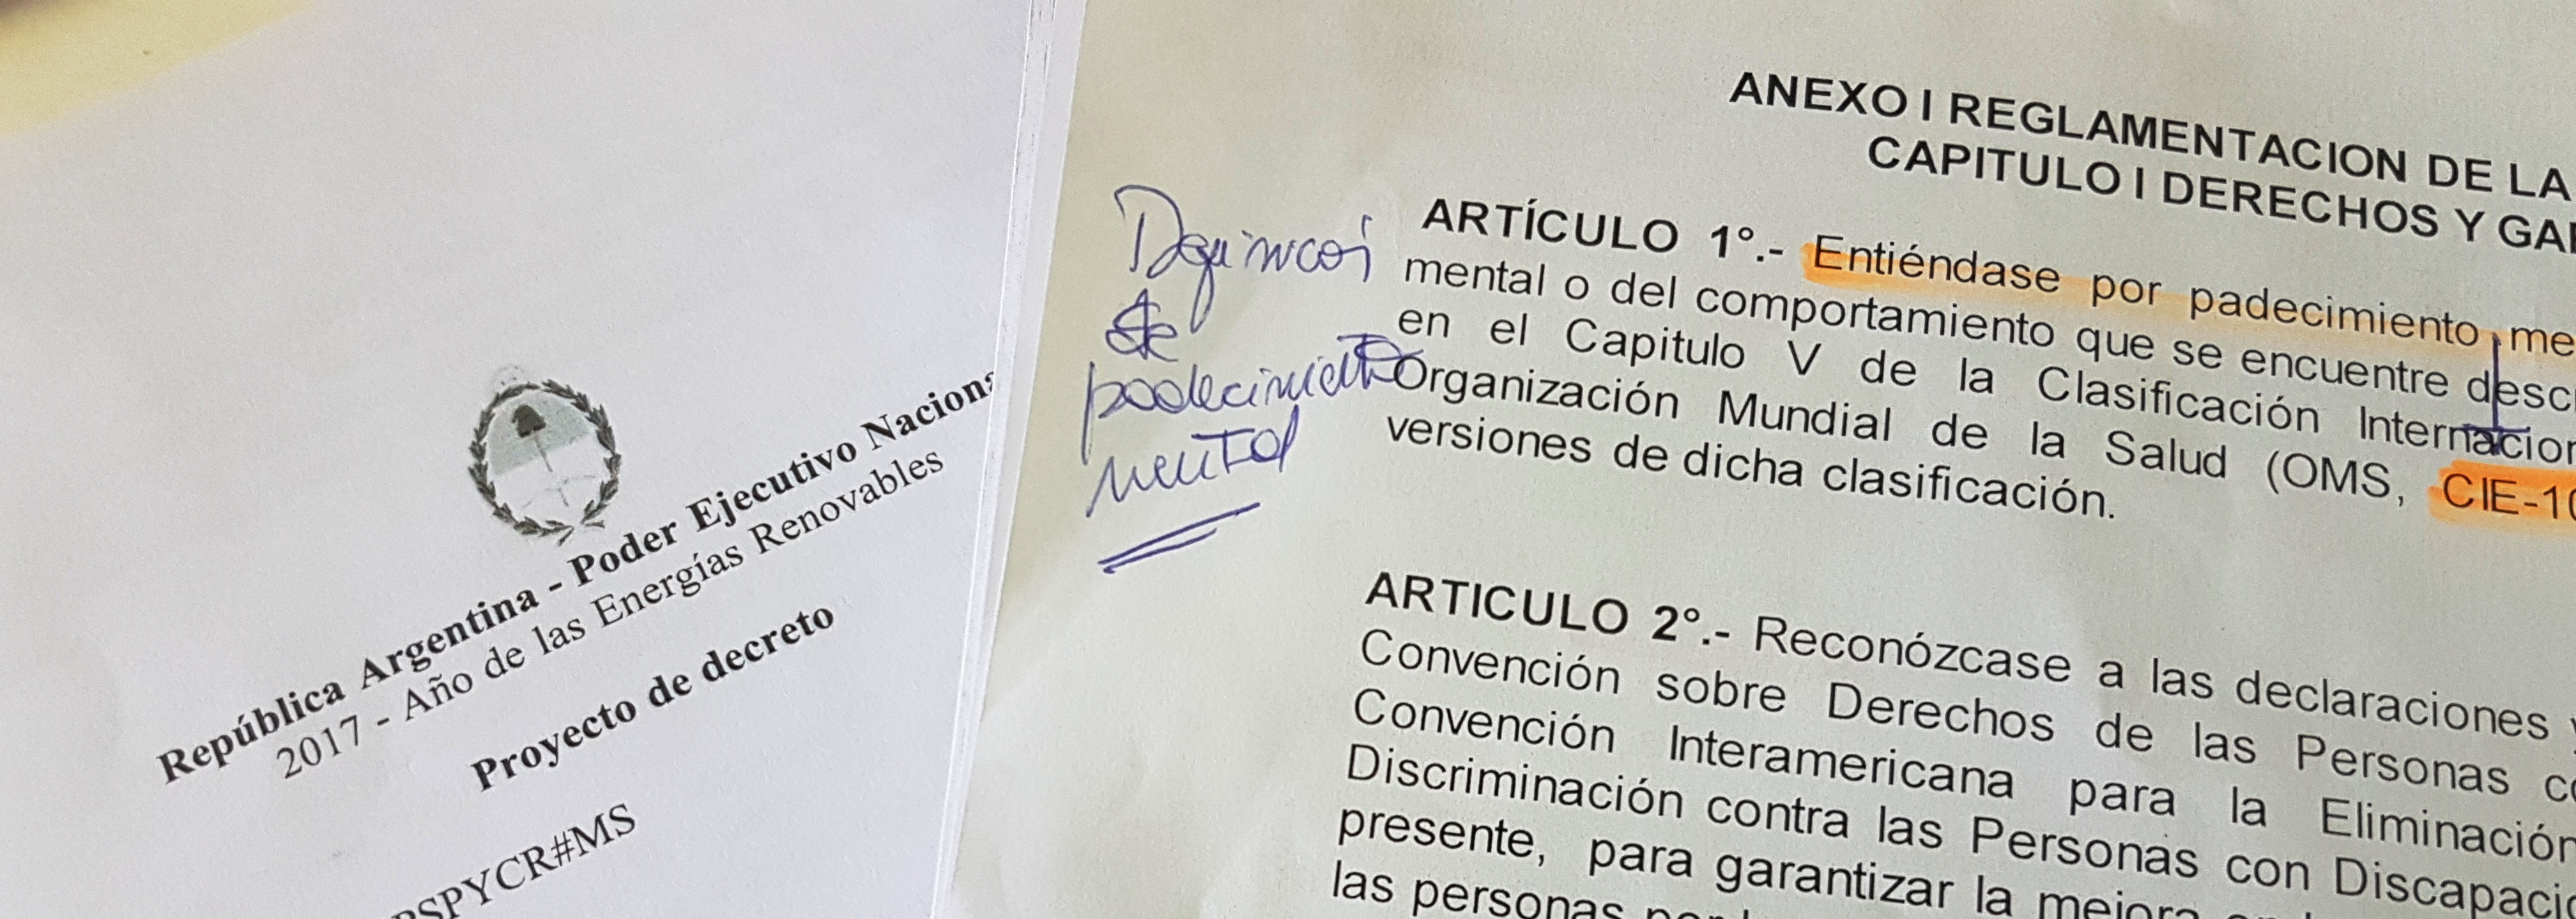 República Argentina - Poder Ejecutivo Nacional
2017 - Año de las Energías Renovables
Proyecto de decreto
PSPYCR#MS
ANEXO I REGLAMENTACION DE LA
CAPITULO I DERECHOS Y GA
de
padecimiento
mental
ARTÍCULO 1°.- Entiéndase por padecimiento me
mental o del comportamiento que se encuentre desc
en el Capitulo V de la Clasificación Internacion
Organización Mundial de la Salud (OMS, CIE-10
versiones de dicha clasificación.
ARTICULO 2°.- Reconózcase a las declaraciones
Convención sobre Derechos de las Personas co
Convención Interamericana para la Eliminación
Discriminación contra las Personas con Discapaci
presente, para garantizar la mejora
las personas